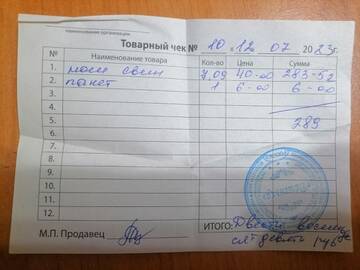 наименование организации
Товарный чек № 10 12 07 2023г.
№ Наименование товара Кол-во Цена Сумма
1. 7,09 40-00 283-52
2. пакет 1 6-00 6-00
3.
4.
5. 289
6.
7.
8.
9.
10.
11.
12.
ИТОГО: Двести восемьдесят девять руб
М.П. Продавец